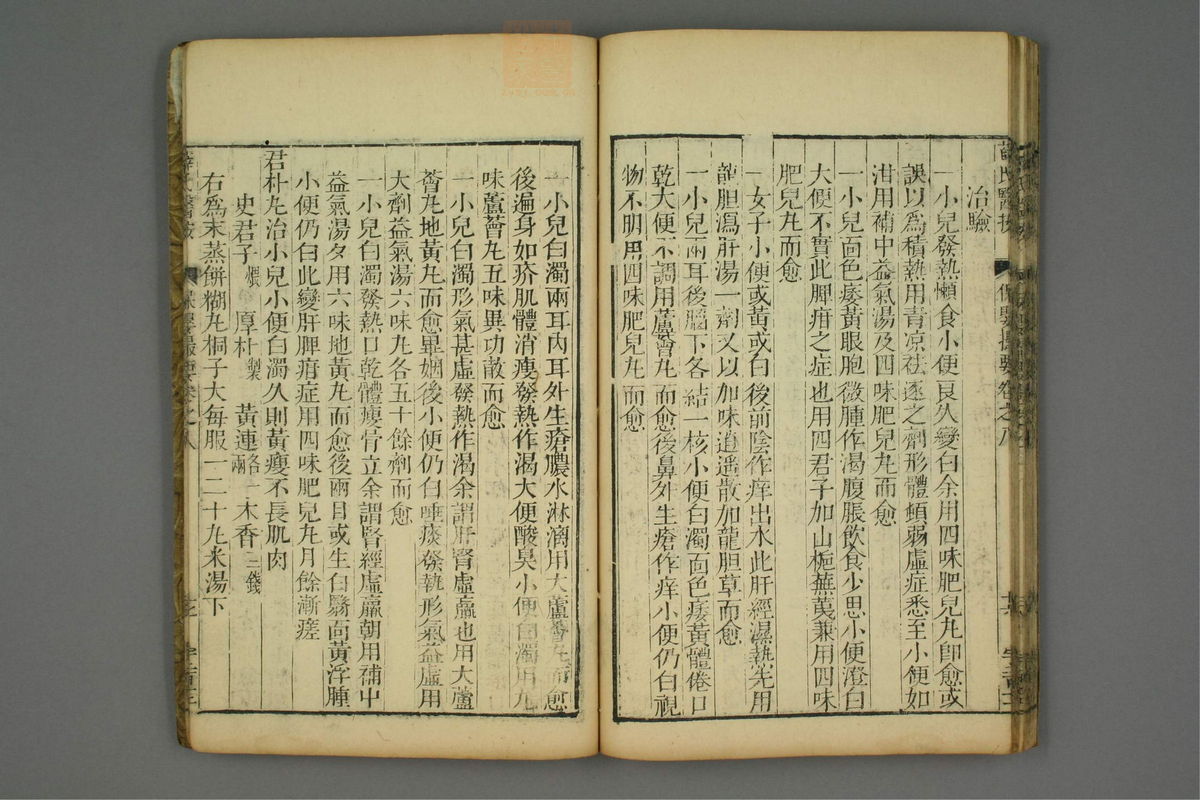 薛氏醫按 保嬰撮要卷之八
治驗
一小兒發熱懶食小便良久變白余用四味肥兒丸卽愈或
誤以爲積熱用青凉祛逐之劑形體頓弱虛症悉至小便如
泔用補中益氣湯及四味肥兒丸而愈
一小兒面色痿黃眼胞微腫作渴腹脹飲食少思小便澄白
大便不實此脾疳之症也用四君子加山梔蕪荑兼用四味
肥兒丸而愈
一女子小便或黃或白後前陰作痒出水此肝經濕熱先用
龍胆瀉肝湯一劑又以加味逍遥散加龍胆草而愈
一小兒兩耳後腦下各結一核小便白濁面色痿黃體倦口
乾大便不調用蘆薈丸而愈後鼻外生瘡作痒小便仍白視
物不明用四味肥兒丸而愈
一小兒白濁兩耳內耳外生瘡膿水淋漓用大蘆薈丸而愈
後遍身如疥肌體消瘦發熱作渴大便酸臭小便白濁用九
味蘆薈丸五味異功散而愈
一小兒白濁形氣甚虛發熱作渴余謂肝腎虛羸也用大蘆
薈丸地黃丸而愈畢姻後小便仍白唾痰發熱形氣益虛用
大劑益氣湯六味丸各五十餘劑而愈
一小兒白濁發熱口乾體瘦骨立余謂腎經虛羸朝用補中
益氣湯夕用六味地黃丸而愈後兩目或生白翳面黃浮腫
小便仍白此變肝脾疳症用四味肥兒丸月餘漸瘥
君朴丸治小兒小便白濁久則黃瘦不長肌肉
史君子煨 厚朴製 黃連各一兩 木香三錢
右爲末蒸餅糊丸桐子大每服一二十丸米湯下
薛氏醫按 保嬰撮要卷之八